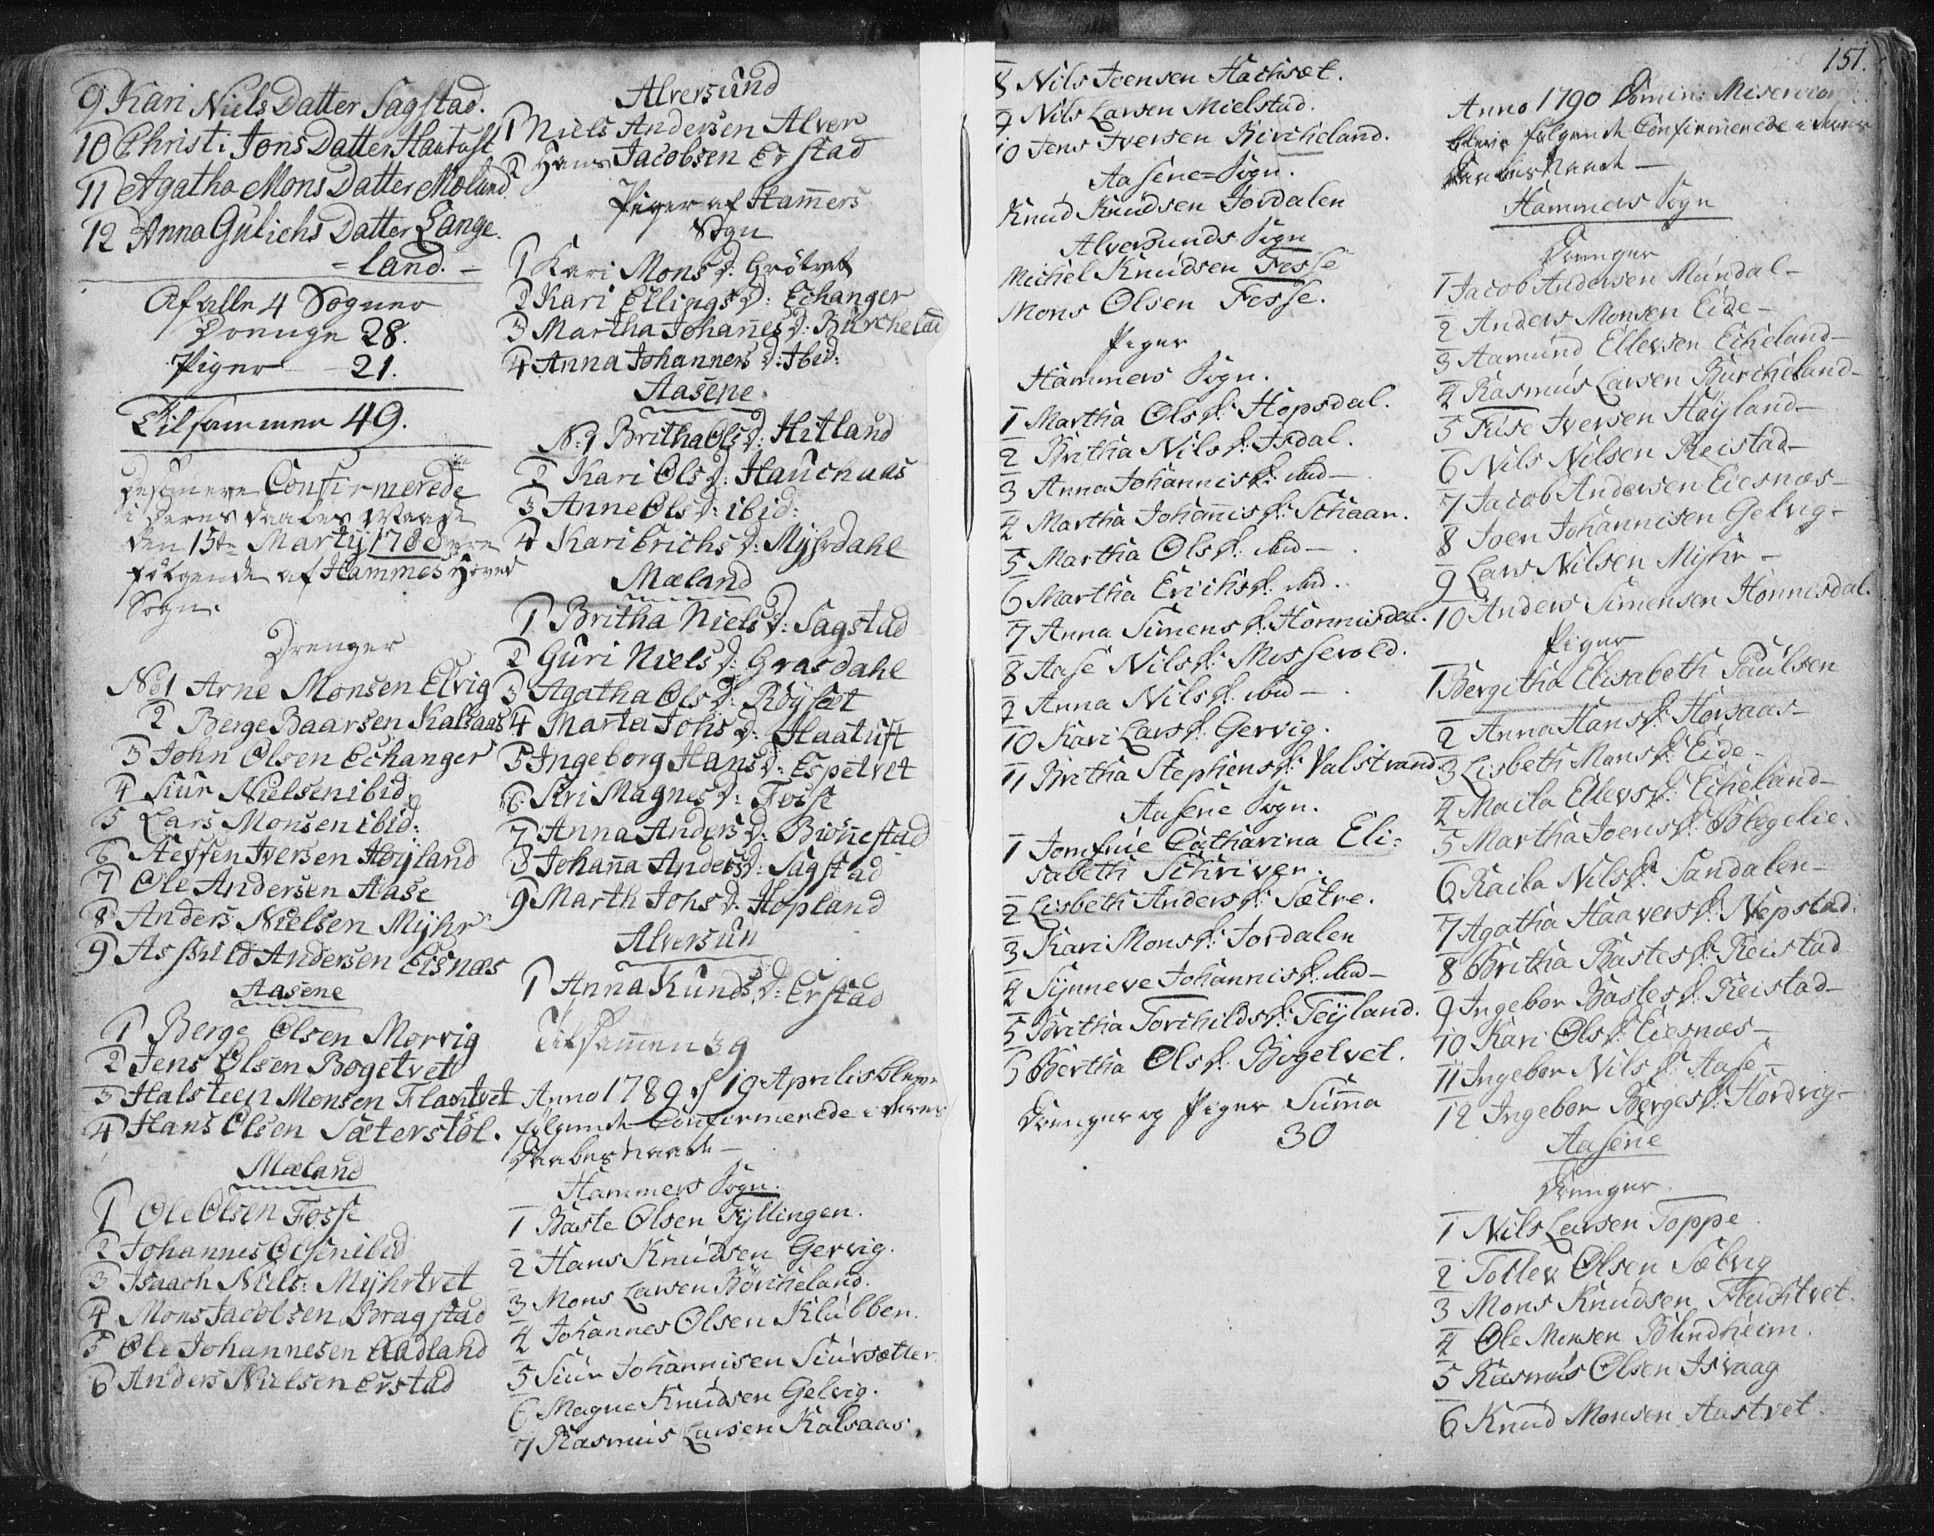 9 Kari Niels Datter Sagstad.
10 Christi Jons Datter Haatuft
11 Agatha Mons Datter Mæland
12 Anna Gulichs Datter Lange
=land. –
Af alle 4 Sogner
Drenge 28.
Piger – 21.
Tilsammen 49.
Confirmerede
i deres Daabes Naade
den 15de Martij 1788 ere
følgende af Hammers Hoved
Sogn.
Drenger
No 1 Arne Monsen Elvig
2 Berge Baarsen Kalsaas
3 John Olsen Echanger
4 Siur Nielsen ibid
5 Lars Monsen ibid:
6 Steffen Iversen Høyland
7 Ole Andersen Aase
8 Anders Nielsen Myhr
9 Andersen Eisnæs
Aasene
1 Berge Olsen Morvig
2 Jens Olsen Bogetvet
3 Halsteen Monsen Flaktvet
4 Hans Olsen Sæterstøl.
Mæland
1 Ole Olsen Fosse
2 Johannes Olsen ibid
3 Isaach Niels: Myhrtvet
4 Mons Jacobsen Bragstad
5 Ole Johannesen Aadland
6 Anders Nielsen Erstad
Alversund
1 Niels Andersen Alver
2 Hans Jacobsen Erstad
Piger af Hammers
Sogn
1 Kari Mons D: Grøtvet
2 Kari Ellings D: Echanger
3 Martha Johannes D: Burcheland
4 Anna Johannes D: Ibid:
Aasene.
N: 1 Britha Ols D: Hitland
2 Kari Ols D: Hauchaas
3 Anne Ols D: ibid:
4 Kari Erichs D: Myhrdahl
Mæland
1 Britha Niels D: Sagstad
2 Guri Niels D: Grasdahl
3 Agatha Ols D: Røysæt
4 Marta Johs D: Haatuft
5 Ingeborg Hans D: Espetvet
6 Siri Magnes D: Fosse
7 Anna Anders D: Biønnestad
8 Johanna Anders D: Sagstad
9 Marth Johs D: Hopland
Alversun
1 Anna Kunds D: Erstad
Tilsammen 39
Anno 1789 d 19 Aprilis bleve
følgende Confirmerede i deres
Daabes Naade –
Hammers Sogn.
1 Baste Olsen Fyllingen.
2 Hans Knudsen Gervig.
3 Mons Larsen Børcheland.
4 Johannes Olsen Klubben.
5 Siur Johannisen Siursætter
6 Magne Knudsen Gelvig.
7 Rasmus Larsen Kalsaas
8 Nils Joensen Hachsæt.
9 Nils Larsen Mielstad.
10 Jens Iversen Bircheland.
Aasene=Sogn.
Knud Knudsen Jordalen
Alversunds Sogn
Michel Knudsen Fosse
Mons Olsen Fosse.
Piger
Hammers Sogn.
1 Martha Olsd: Hopsdal.
2 Britha Nilsd: Isdal.
3 Anna Johannisd: ibid –
4 Martha Johannisd: Schaar.
5 Martha Olsd: ibid –
6 Martha Erichsd: ibid.
7 Anna Simensd: Honnisdal.
8 Aase Nilsd: Mossevold.
9 Anna Nilsd: ibid –
10 Kari Larsd: Gervig.
11 Britha Stephensd: Valstrand.
Aasene Sogn.
1 Jomfrue Catharina Eli=
sabeth Schriver.
2 Lisbeth Andersd: Sætre.
3 Kari Monsd: Jordalen
4 Synneve Johannisd: ibid –
5 Britha Torchildsd: Tøyland.
6 Bertha Olsd: Bogetvet.
Drenger og Piger Summa
30
151.
Anno 1790 Domin: Misericord
bleve følgende Confirmerede i deres
Daabes Naade –
Hammers Sogn
Drenger
1 Jacob Andersen Mundal –
2 Anders Monsen Eide –
3 Aamund Ellevsen Eicheland –
4 Rasmus Larsen Burcheland –
5 Iversen Høyland –
6 Nils Nilsen Reistad –
7 Jacob Andersen Eiesnæs –
8 Joen Johannisen Gelvig –
9 Lars Nilsen Myhr –
10 Anders Simensen Honnisdal.
Piger
1 Bergitha Elisabeth Paulsen
2 Anna Hansd: Horsaas –
3 Lisbeth Monsd: Eide –
4 Maila Ellevsd: Eicheland –
5 Martha Joensd: Blegelie.
6 Raila Nilsd: Sandalen –
7 Agatha Haaversd: Nepstad.
8 Britha Bastesd: Reistad
9 Ingebor Bastesd: Reistad –
10 Kari Olsd: Eiesnæs –
11 Ingebor Nilsd: Aase –
12 Ingebor Bergesd: Hordvig –
Aasene
Drenger.
1 Nils Larsen Toppe
2 Tollev Olsen Sælvig
3 Mons Knudsen Flachtvet.
4 Ole Monsen Blindheim.
5 Rasmus Olsen Isvaag
6 Knud Monsen Aastvet.